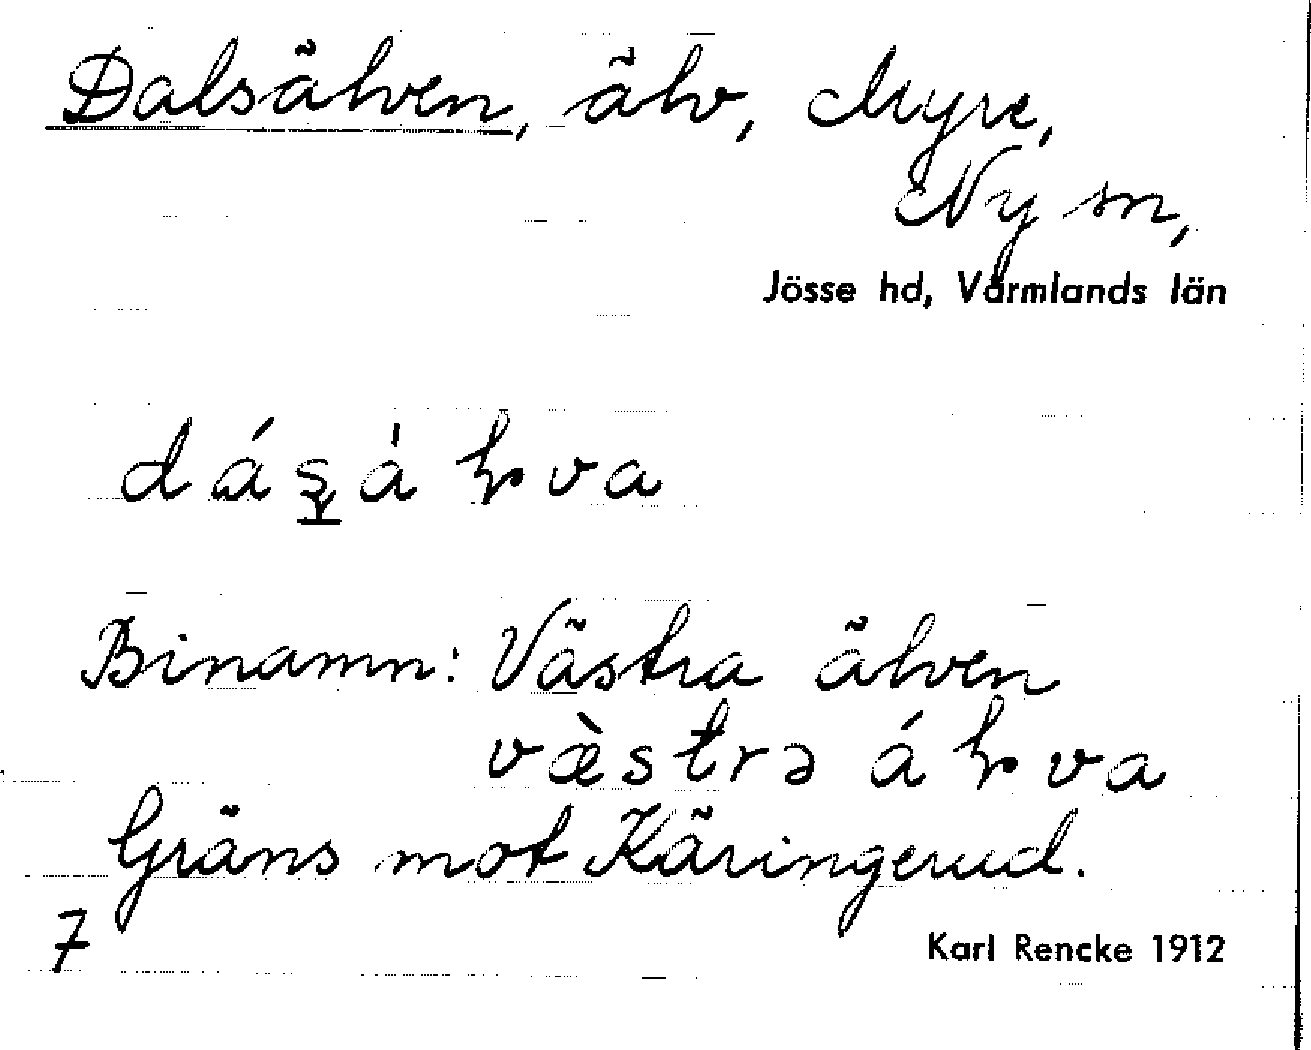 Dalsälven, älv, Myre,
Ny sn,
Jösse hd, Värmlands län
dáʂà ɽva
Binamn: Västra älven
væ̀strə áɽva
Gräns mot Käringerud.
7
Karl Rencke 1912